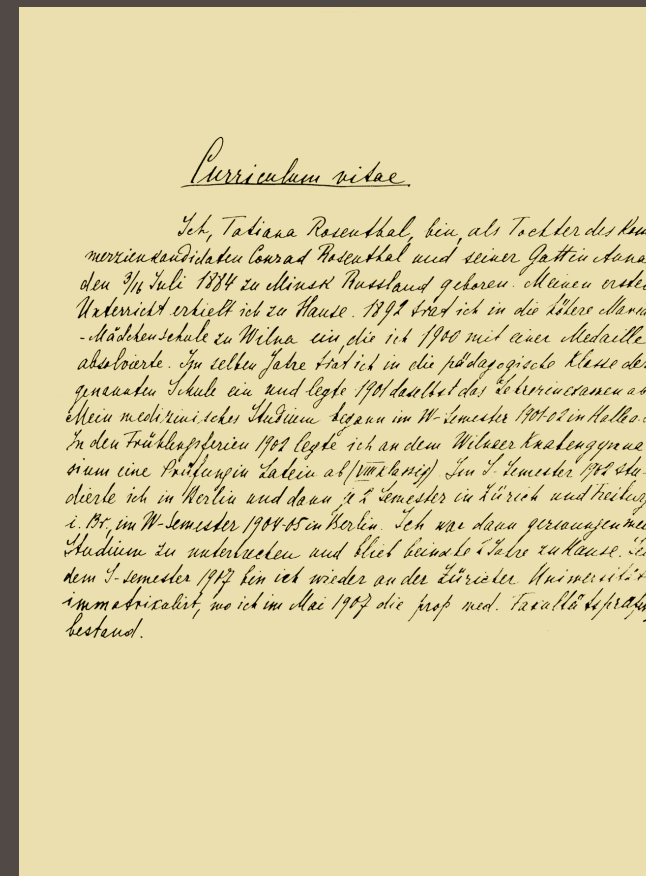 Curriculum vitae
Ich, Tatiana Rosenthal, bin, als Tochter des Kom
merzienkandidaten Conrad Rosenthal und seiner Gattin Anna
den 3/16 Juli 1884 zu Minsk Russland geboren. Meinen ersten
Unterricht erhielt ich zu Hause. 1892 trat ich in die höhere
-Mädchenschule zu Wilna ein, die ich 1900 mit einer Medaille
absolvierte. Im selben Jahre trat ich in die pädagogische Klasse der
genannten Schule ein und legte 1901 daselbst das Lehrerinexamen ab
Mein medizinisches Studium begann im W-Semester 1901-02 in Halle a.
In den Frühlingsferien 1902 legte ich an dem Wilnaer Knabengymna
sium eine Prüfung in Latein ab (VIII klassig) Im S-Semester 1902 stu-
dierte ich in Berlin und dann je 2 Semester in Zürich und Freiburg
i. Br, im W-Semester 1904-05 in Berlin. Ich war dann gezwungen mein
Studium zu unterbrechen und blieb beinahe 2 Jahre zu Hause.
dem S-semester 1907 bin ich wieder an der Züricher Universität
immatrikulirt, wo ich im Mai 1907 die prop med. Fakultätsprüfung
bestand.